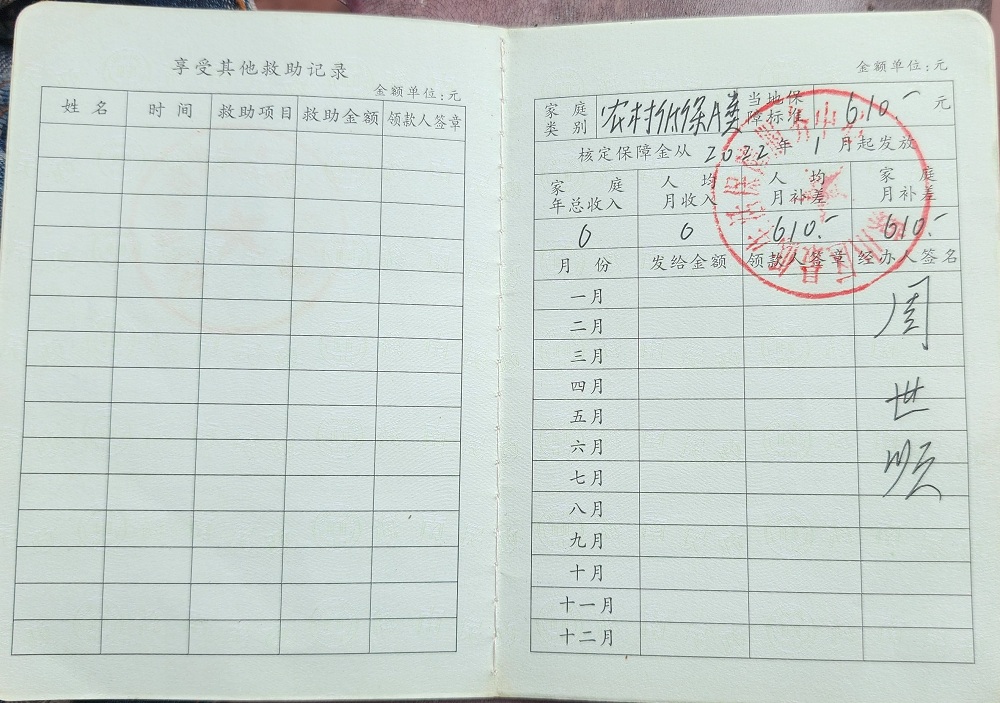 享受其他救助记录
金额单位：元
姓名 时间 救助项目 救助金额 领款人签章
金额单位：元
家庭类别 农村低保A类 当地保障标准 610- 元
核定保障金从2022年1月起发放
家庭年总收入 人均月收入 人均月补差 家庭月补差
0 0 610.- 610.-
月份 发给金额 领款人签章 经办人签名
一月
二月
三月
四月
五月
六月
七月
八月
九月
十月
十一月
十二月
周世顺